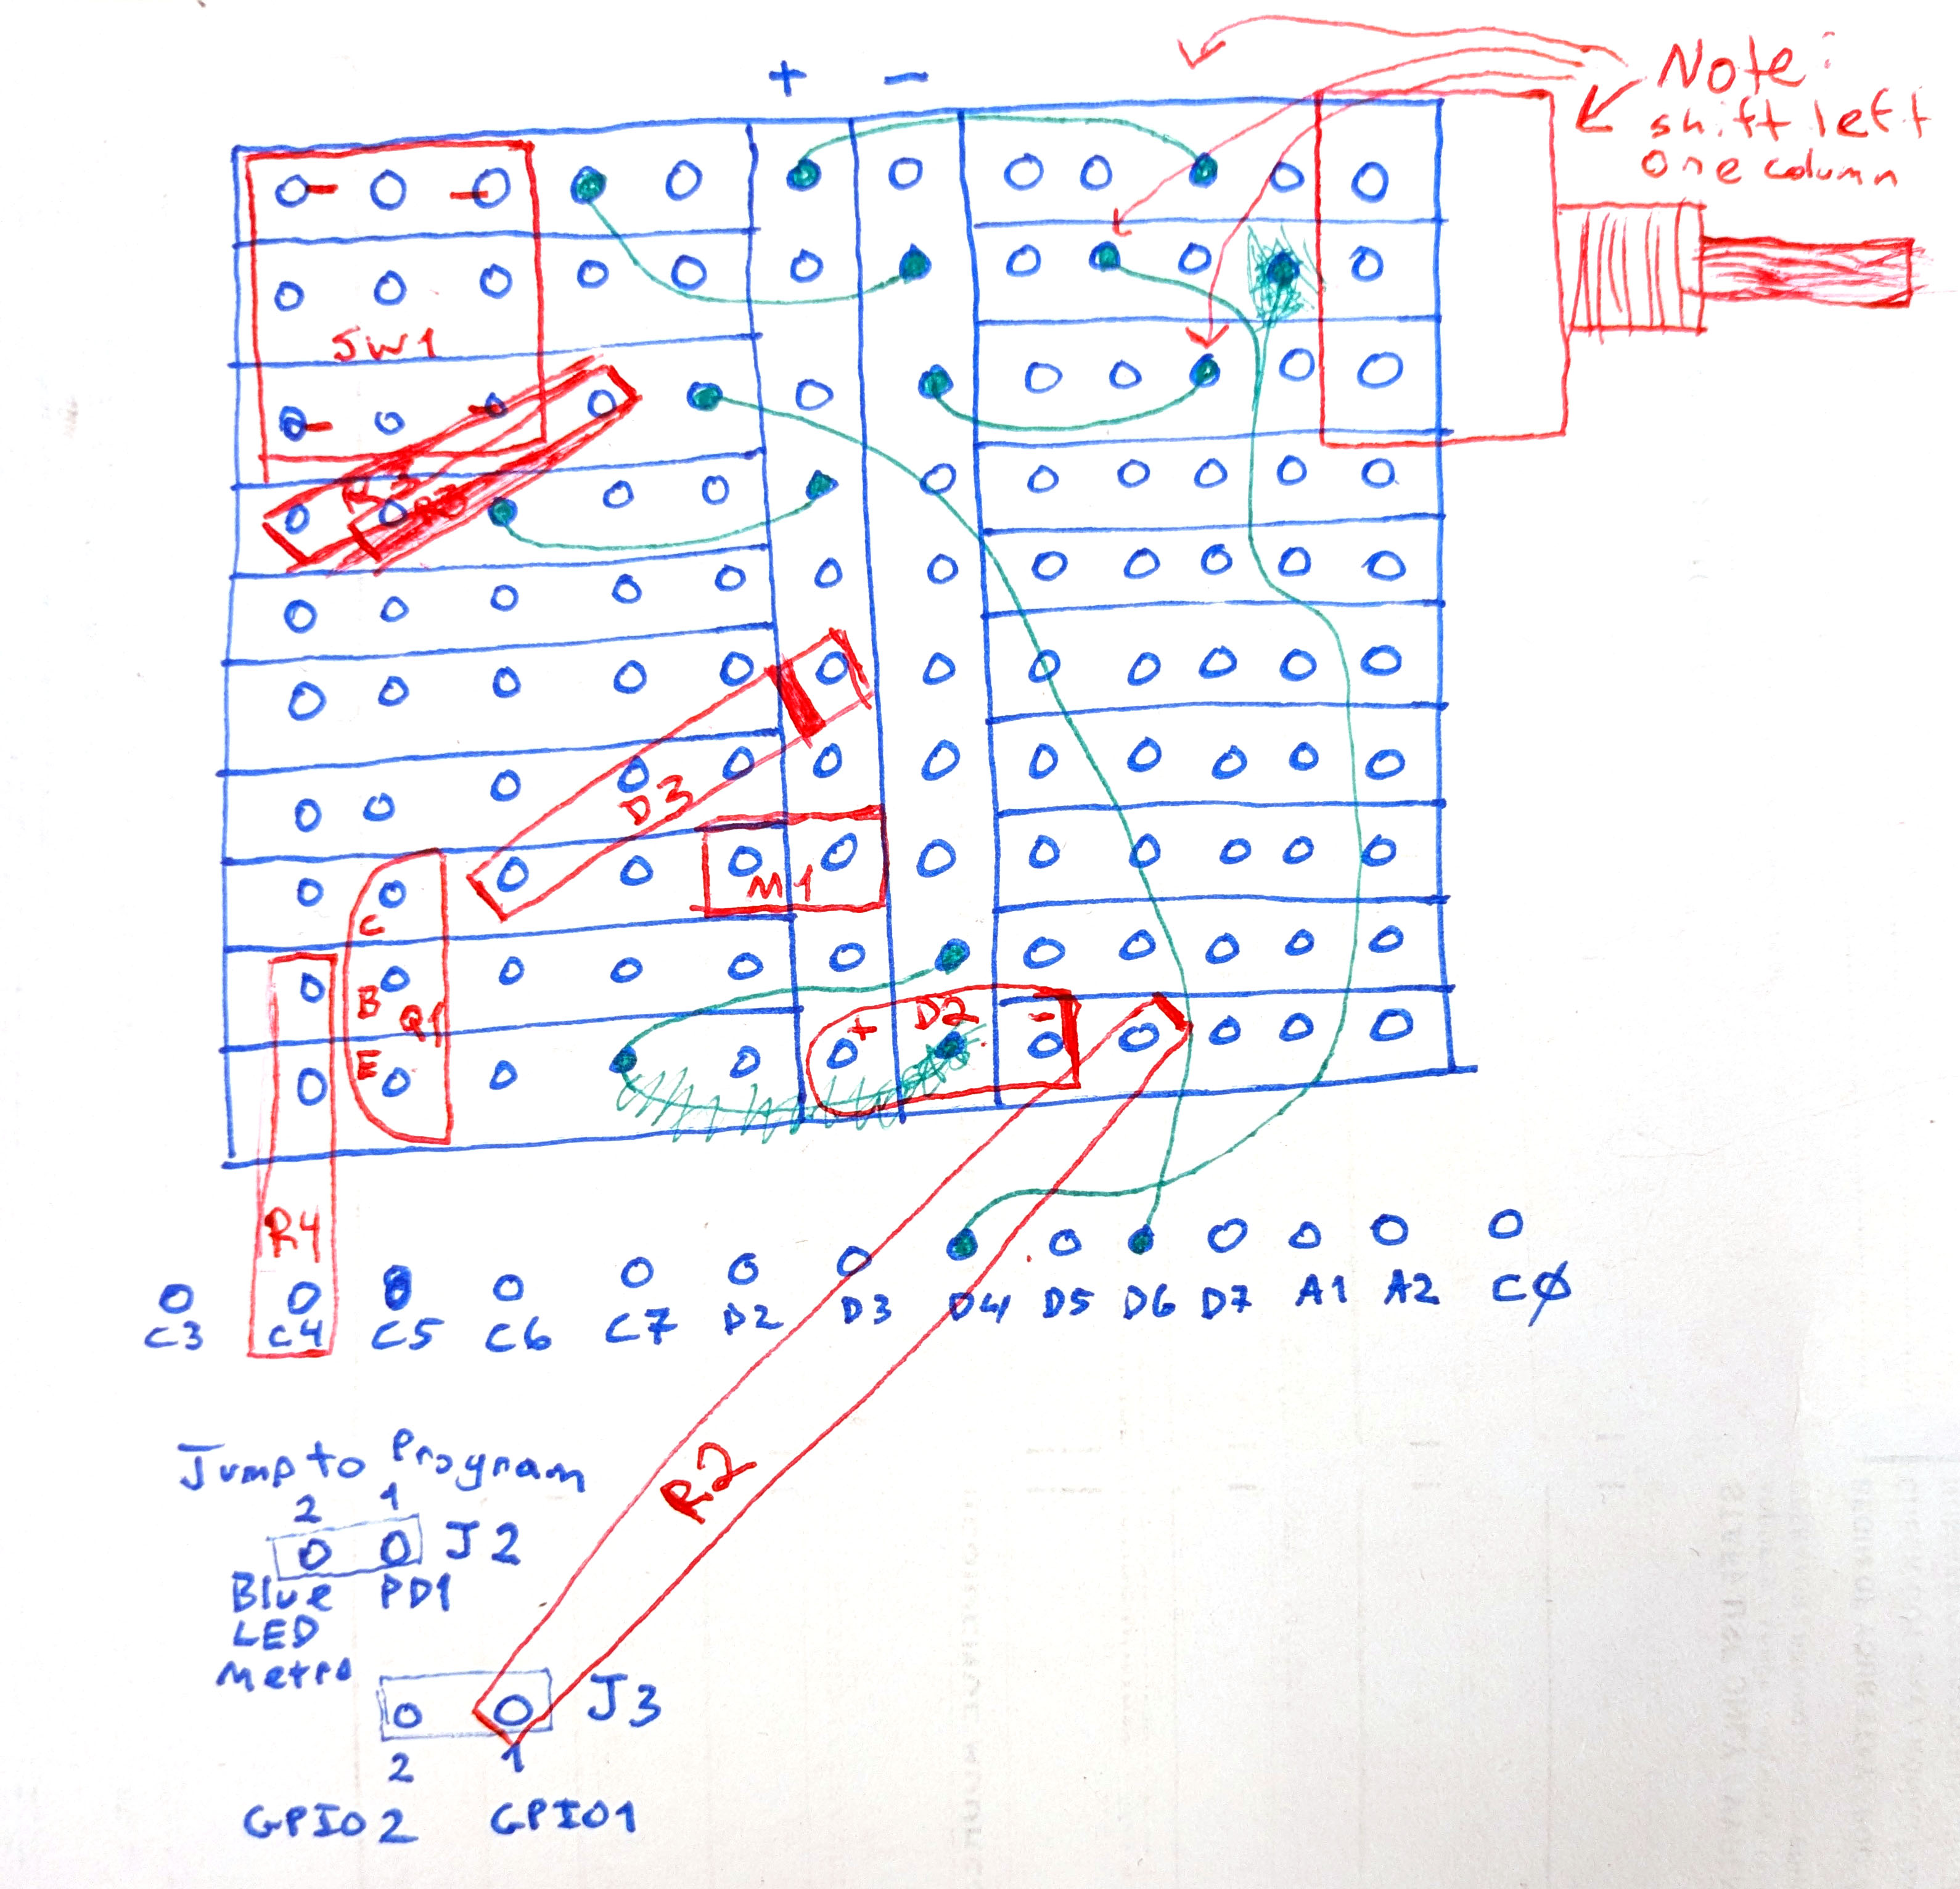 + −
Note:
shift left
one column
SW1
R3
D3
M1
C
B Q1
E
+ D2 −
R4
C3 C4 C5 C6 C7 D2 D3 D4 D5 D6 D7 A1 A2 CØ
R2
Jump to Program
2 1
J2
Blue PD1
LED
Metro
J3
2 1
GPIO2 GPIO1